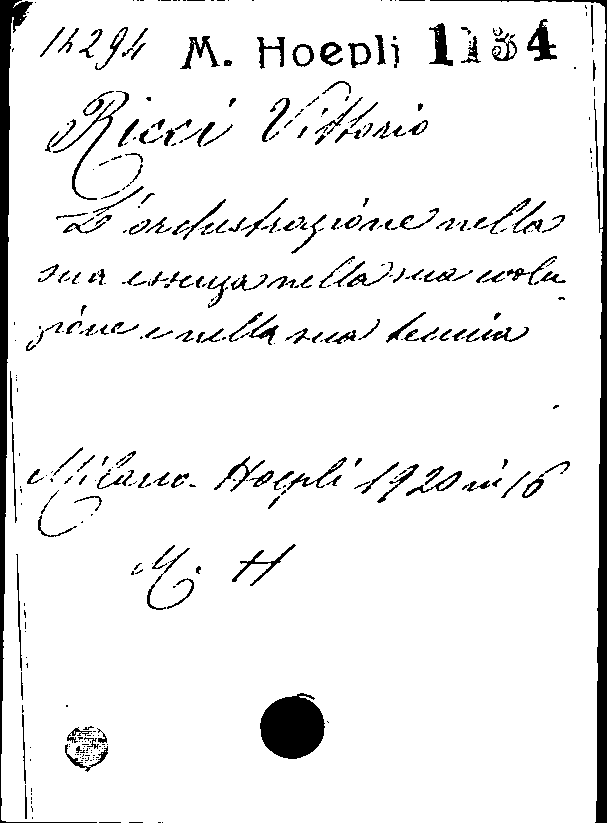 14294 M. Hoepli 1134
Ricci Vittorio
L'orchestrazione nella
sua essenza nella sua evolu-
zione e nella sua tecnica
Milano. Hoepli 1920 in 16
M. H